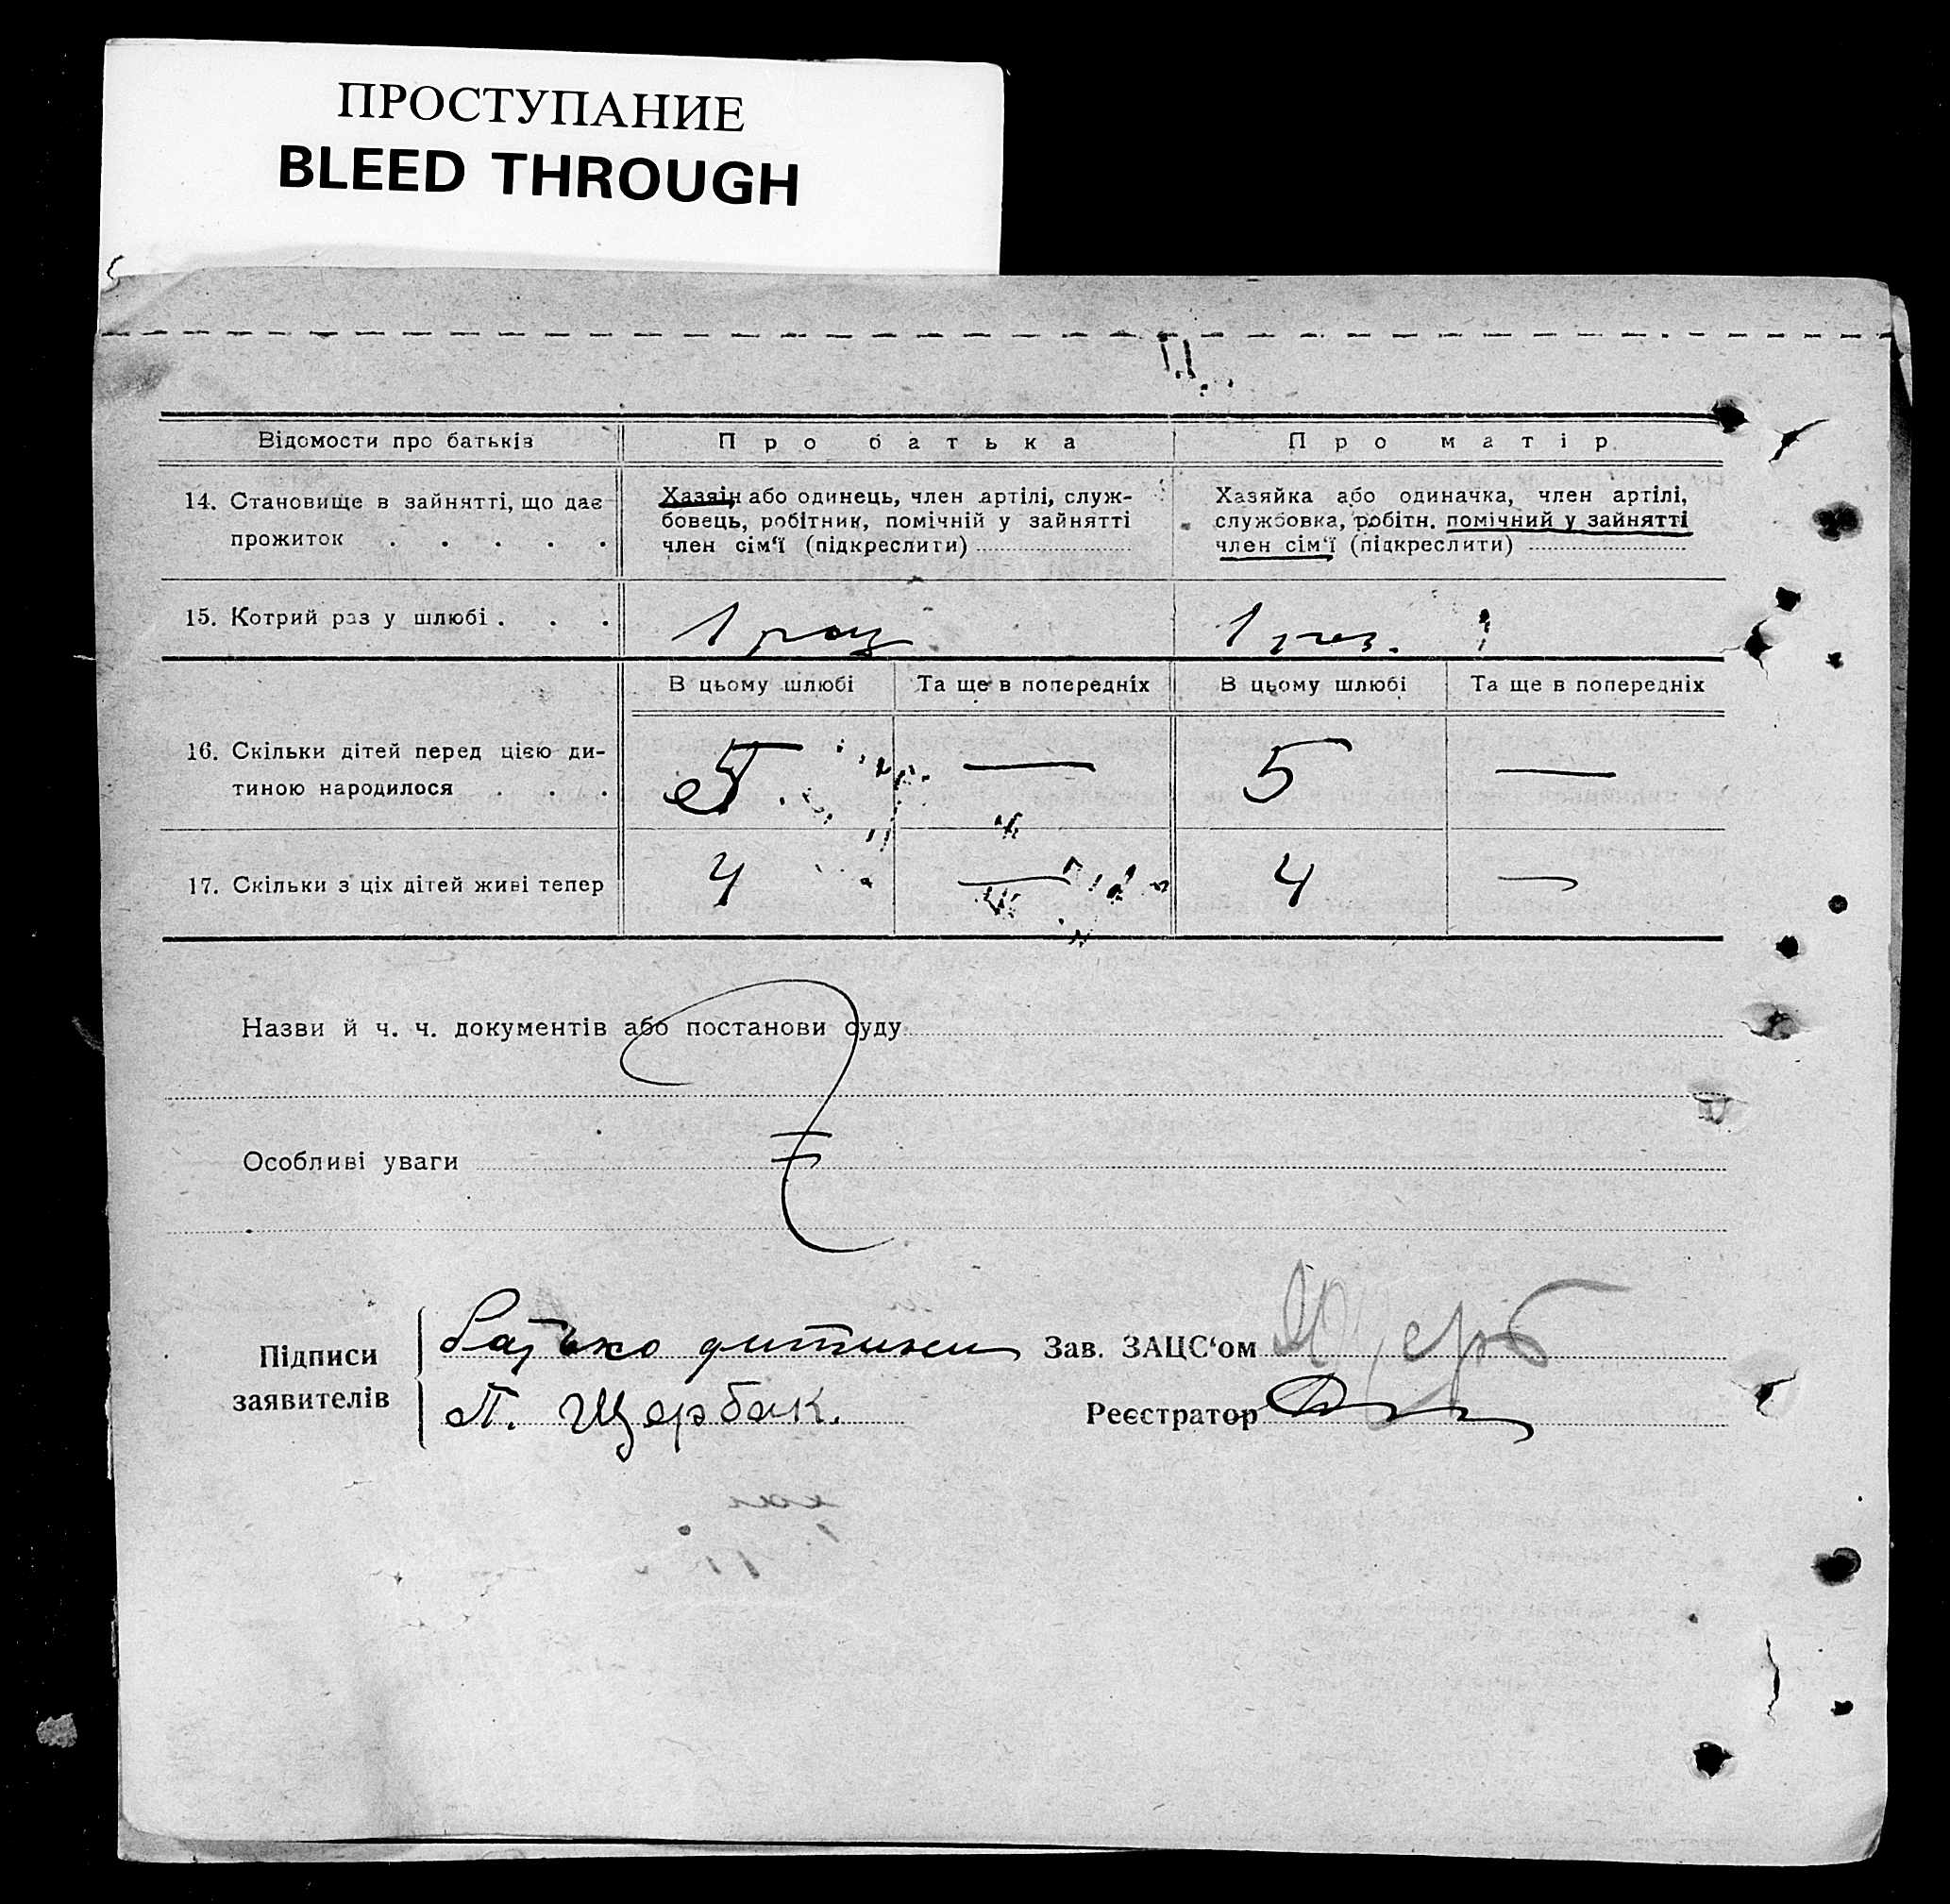 ПРОСТУПАНИЕ
BLEED THROUGH
Відомости про батьків
Про батька
Про матір
14. Становище в зайнятті, що дає
прожиток . . . . .
Хазяін або одинець, член артілі, служ-
бовець, робітник, помічній у зайнятті
член сім‘ї (підкреслити)
Хазяйка або одиначка, член артілі,
службовка, робітн. помічний у зайнятті
член сім‘ї (підкреслити)
15. Котрий раз у шлюбі . . .
1 раз
1 раз.
В цьому шлюбі
Та ще в попередніх
В цьому шлюбі
Та ще в попередніх
16. Скільки дітей перед цією ди-
тиною народилося . . .
5
—
5
—
17. Скільки з ціх дітей живі тепер
4
—
4
—
Назви й ч. ч. документів або постанови суду
Особливі уваги
Підписи
заявителів
Батько дитини
П. Щербак.
Зав. ЗАЦС‘ом
Щерб
Реєстратор